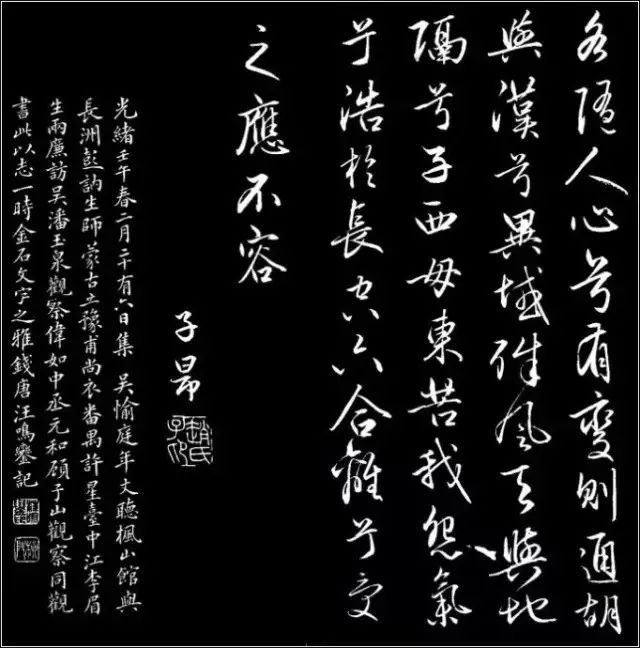 各隨人心兮有變則通胡
與漢兮異域殊風天與地
隔兮子西母東苦我怨氣
兮浩於長空六合離兮受
之應不容
子昂
趙氏子昂
光緒壬午春二月二十有六日集 吳愉庭年丈聽楓山館與
長洲彭訥生師蒙古立豫甫尚衣番禺許星臺中江李眉
生兩廉訪吳潘玉泉觀察偉如中丞元和顧子山觀察同觀
書此以志一時金石文字之雅錢唐汪鳴鑾記